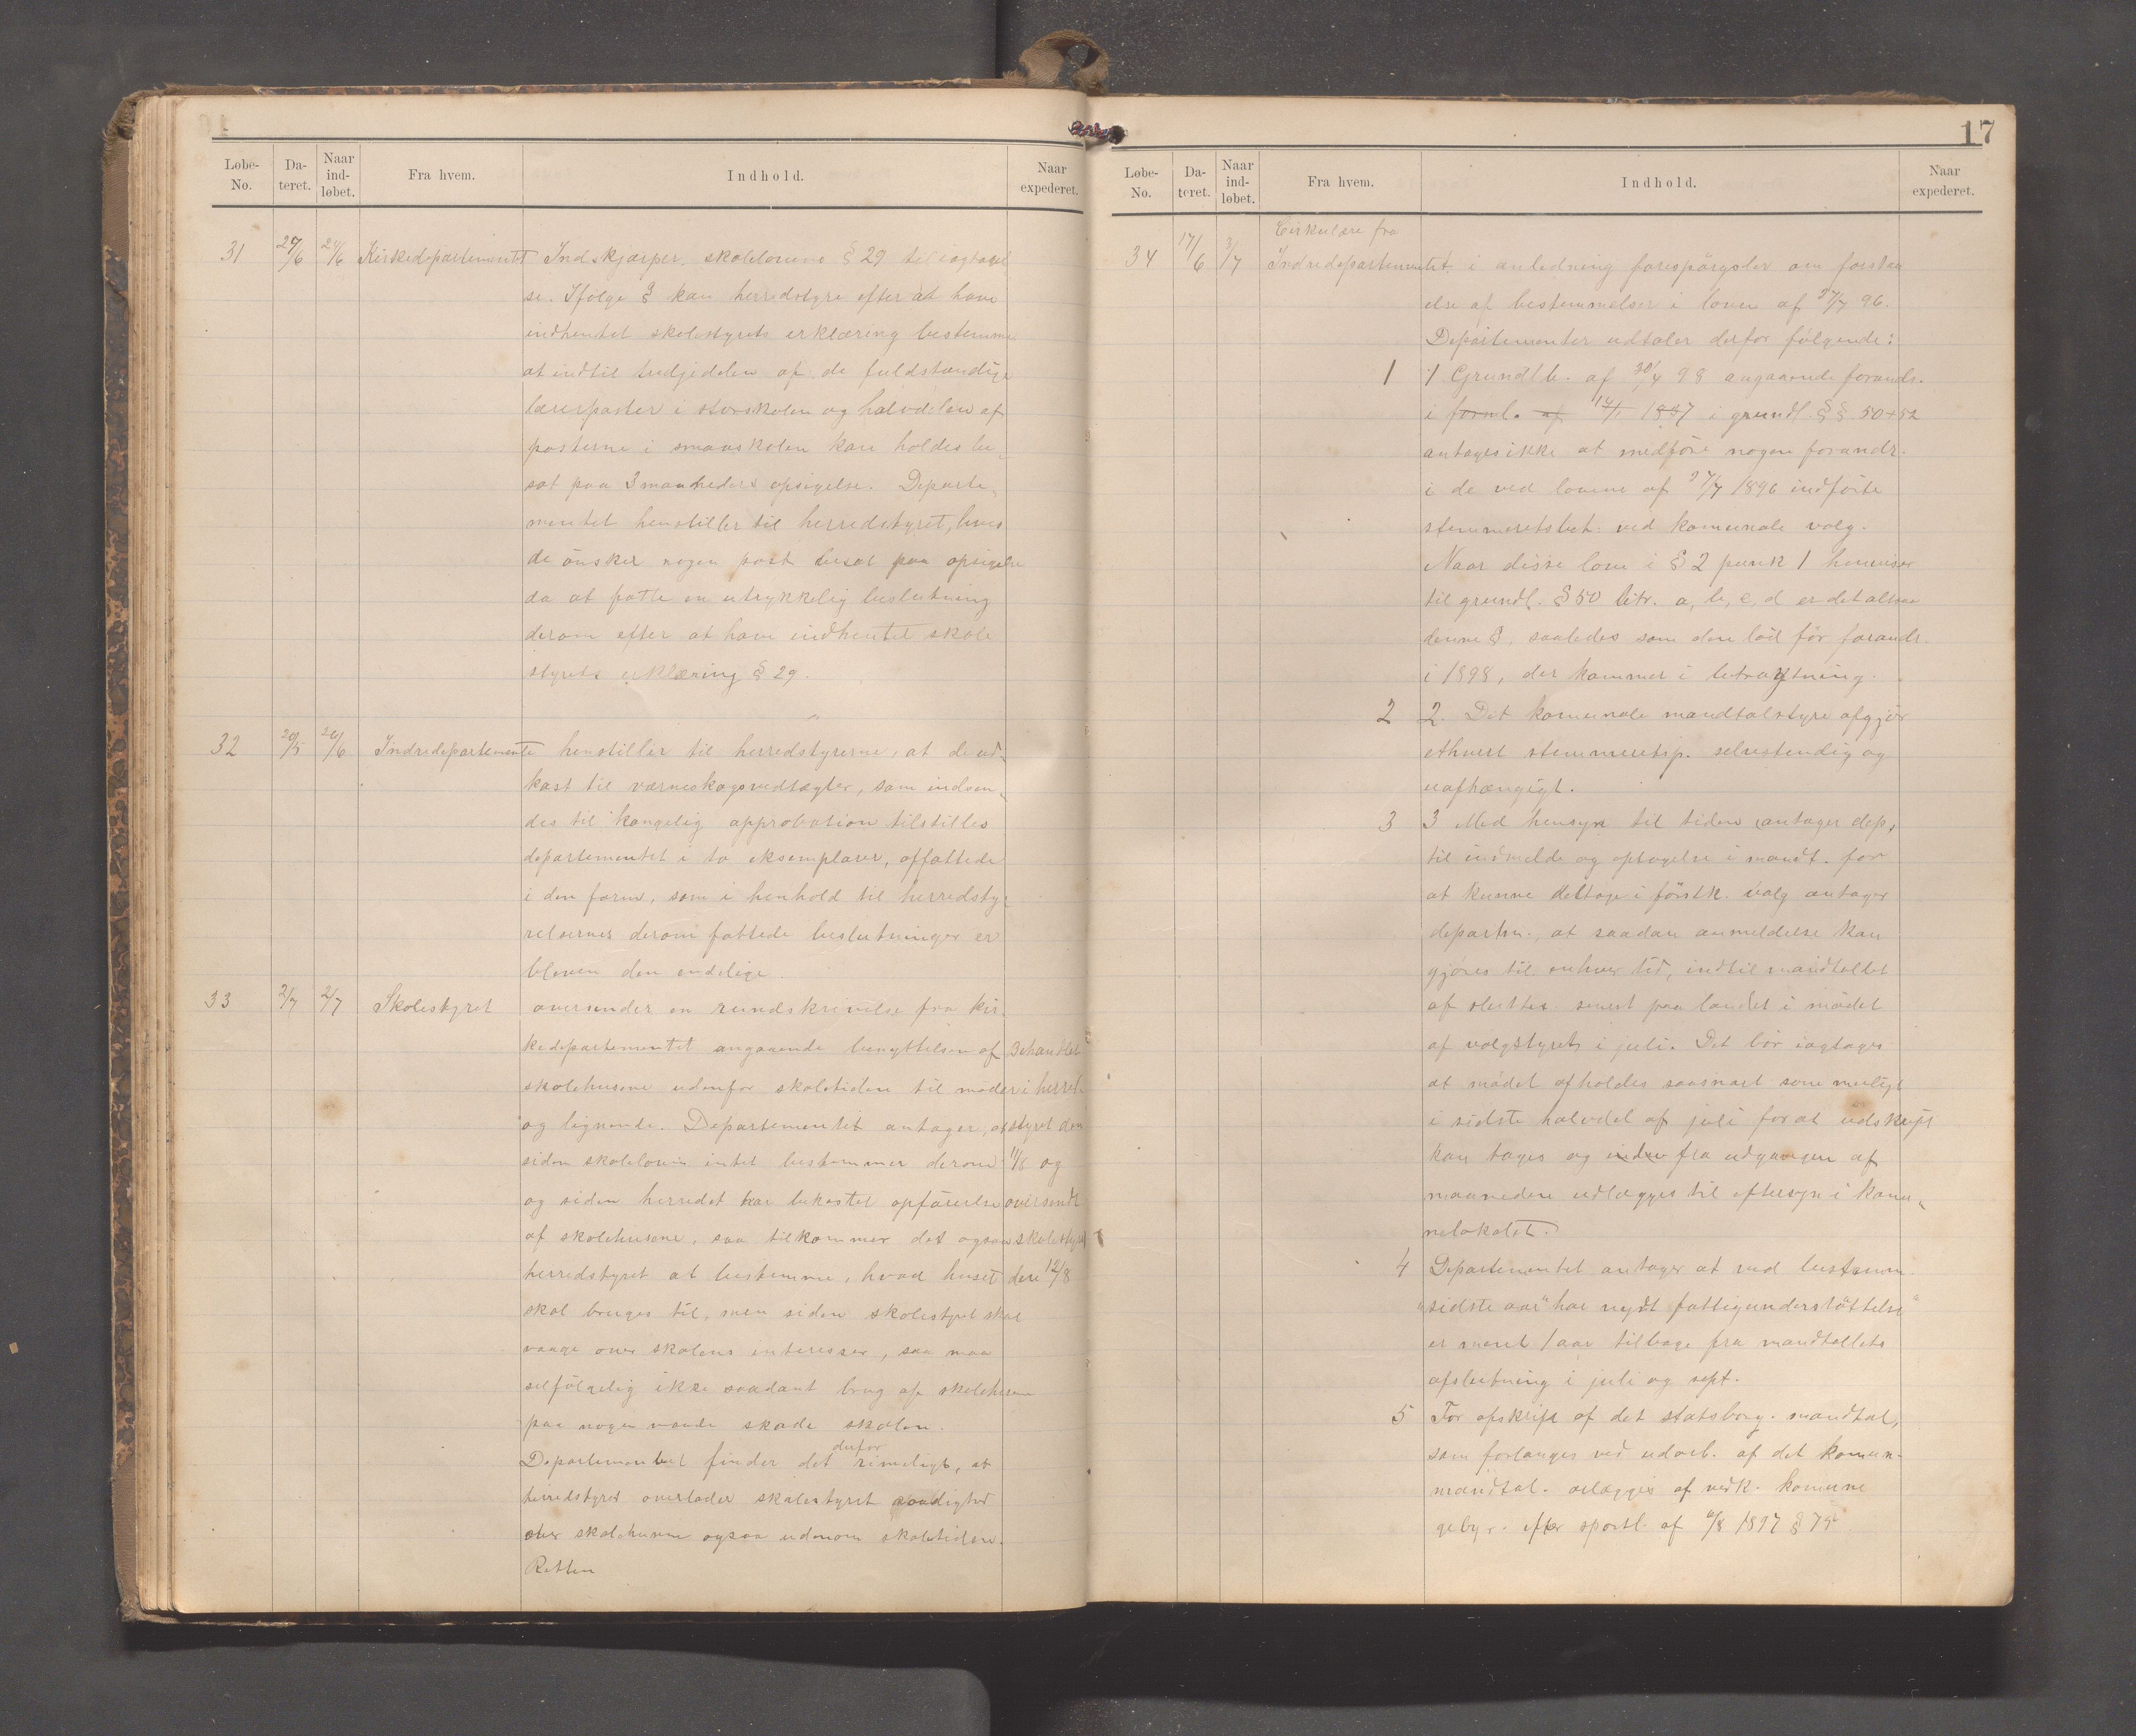 Løbe-No.
Da-teret.
Naar ind-løbet.
Fra hvem.
Indhold.
Naar expederet.
31 27/6 29/6 Kirkedepartementet Indskjærper skolelovens § 29 til iagtagel
se. Ifølge § kan herredstyre efter at have
indhentet skolestyrets erklæring bestemme
at indtil tredjedelen af de fuldstændige
lærerposter i storskolen og halvdelen af
posterne i smaaskolen kan holdes be-
sat paa 3 maaneders opsigelse. Departe-
mentet henstiller til herredstyret, hvis
de ønsker nogen post besat paa opsigelse
da at fatte en utrykkelig beslutning
derom efter at have indhentet skole
styrets erklæring § 29.
32 20/5 29/6 Indredepartemente henstiller til herredstyrerne, at de ud-
kast til værneskogsvedtægter, som indsen-
des til kongelig approbation tilstilles
departementet i to eksemplarer, affattede
i den form, som i henhold til herredsty-
relsernes derom fattede beslutninger er
bleven den endelige.
33 2/7 2/7 Skolestyret oversender en rundskrivelse fra kir-
kedepartementet angaaende benyttelsen af Behandlet
skolehusene udenfor skoletiden til møder i herred-
og lignende. Departementet antager, at styret den
siden skoleloven intet bestemmer derom 11/8 og
og siden herredet har bekostet opførelse oversendt
af skolehusene, saa tilkommer det ogsaa skolestyret
herredstyret at bestemme, hvad huset den 12/8
skal bruges til, men siden skolestyret skal
vaage over skolens interesser, saa maa
selfølgelig ikke saadant brug af skolehusene
paa nogen maade skade skolen.
Departementet finder det derfor rimeligt, at
herredstyret overlader skolestyret raadighed
over skolehusene ogsaa udenom skoletiden.
Retten
17
Løbe-No.
Da-teret.
Naar ind-løbet.
Fra hvem.
Indhold.
Naar expederet.
Cirkulære fra
34 17/6 3/7 Indredepartementet i anledning forespørgsler om forstaa
else af bestemmelser i loven af 27/7 96.
Departementer udtaler derfor følgende:
1 1 Grundlb. af 30/4 98 angaaende forandr.
i forml. af 16/1 1897 i grundl. § § 50 + 52
antages ikke at medføre nogen forandr.
i de ved lovene af 27/7 1896 indførte
stemmeretsbet. ved komunale valg.
Naar disse love i § 2 punk 1 henviser
til grundl. § 50 litr. a, b, c, d er det altsaa
denne §, saaledes som den lød før forandr.
i 1898, der kommer i betragtning.
2 2. Det komunale mandtalstyre afgjør
ethvert stemmeretsp. selvstendig og
uafhængigt.
3 3 Med hensyn til tiden antager dep,
til indmelde og optagelse i mandt. for
at kunne deltage i førstk. valg antager
departm., at saadan anmeldelse kan
gjøres til enhver tid, indtil mandtallet
af sluttes senest paa landet i mødet
af valgstyret i juli. Det bør iagtages
at mødet afholdes saasnart som muligt
i sidste halvdel af juli for at udskrift
kan tages og inden fra udgangen af
maaneden udlægges til eftersyn i komu-
nelokalet.
4 Departementet antager at ved bestemm.
"sidste aar" har nydt fattigunderstøttelse"
er ment 1 aar tilbage fra mandtallets
afslutning i juli og sept.
5 For afskrift af det statsborg. mandtal,
som forlanges ved udarb. af det komun-
mandtal. erlægges af vedk. komune
gebyr. efter sportl. af 6/8 1897 § 79